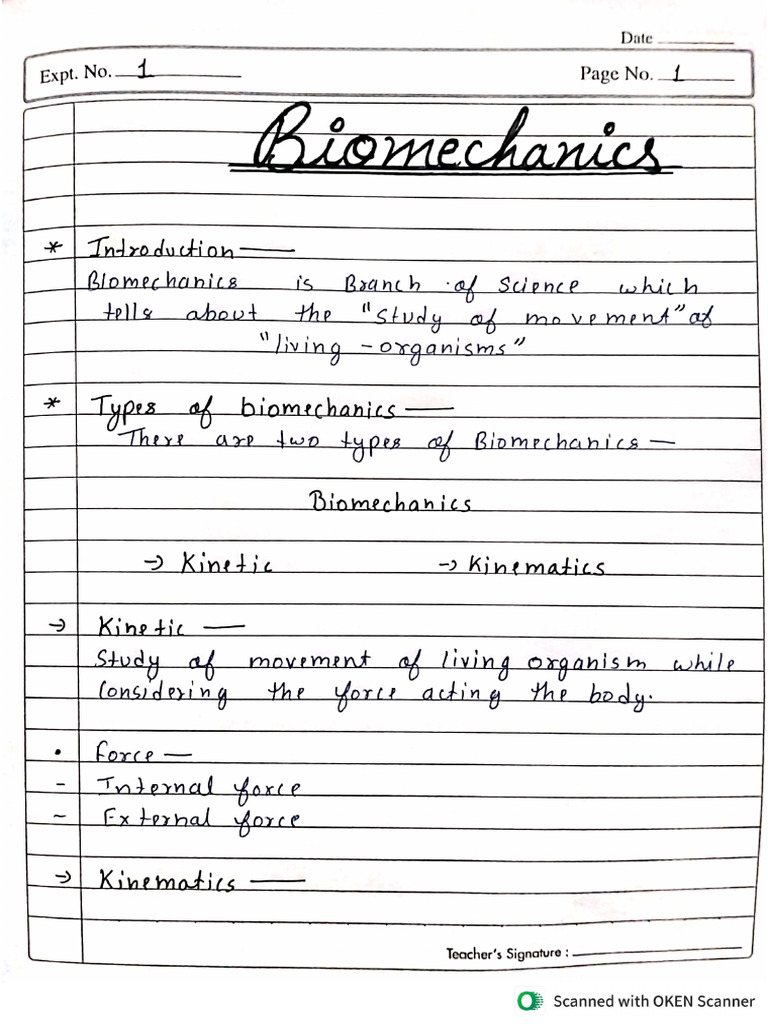 Date
Expt. No. 1
Page No. 1
Biomechanics
* Introduction —
Biomechanics is Branch of science which
tells about the "study of movement" of
"living - organisms"
* Types of biomechanics —
There are two types of Biomechanics —
Biomechanics
→ Kinetic → Kinematics
→ Kinetic —
Study of movement of living organism while
Considering the force acting the body.
• force —
- Internal force
~ External force
→ Kinematics —
Teacher's Signature :
Scanned with OKEN Scanner